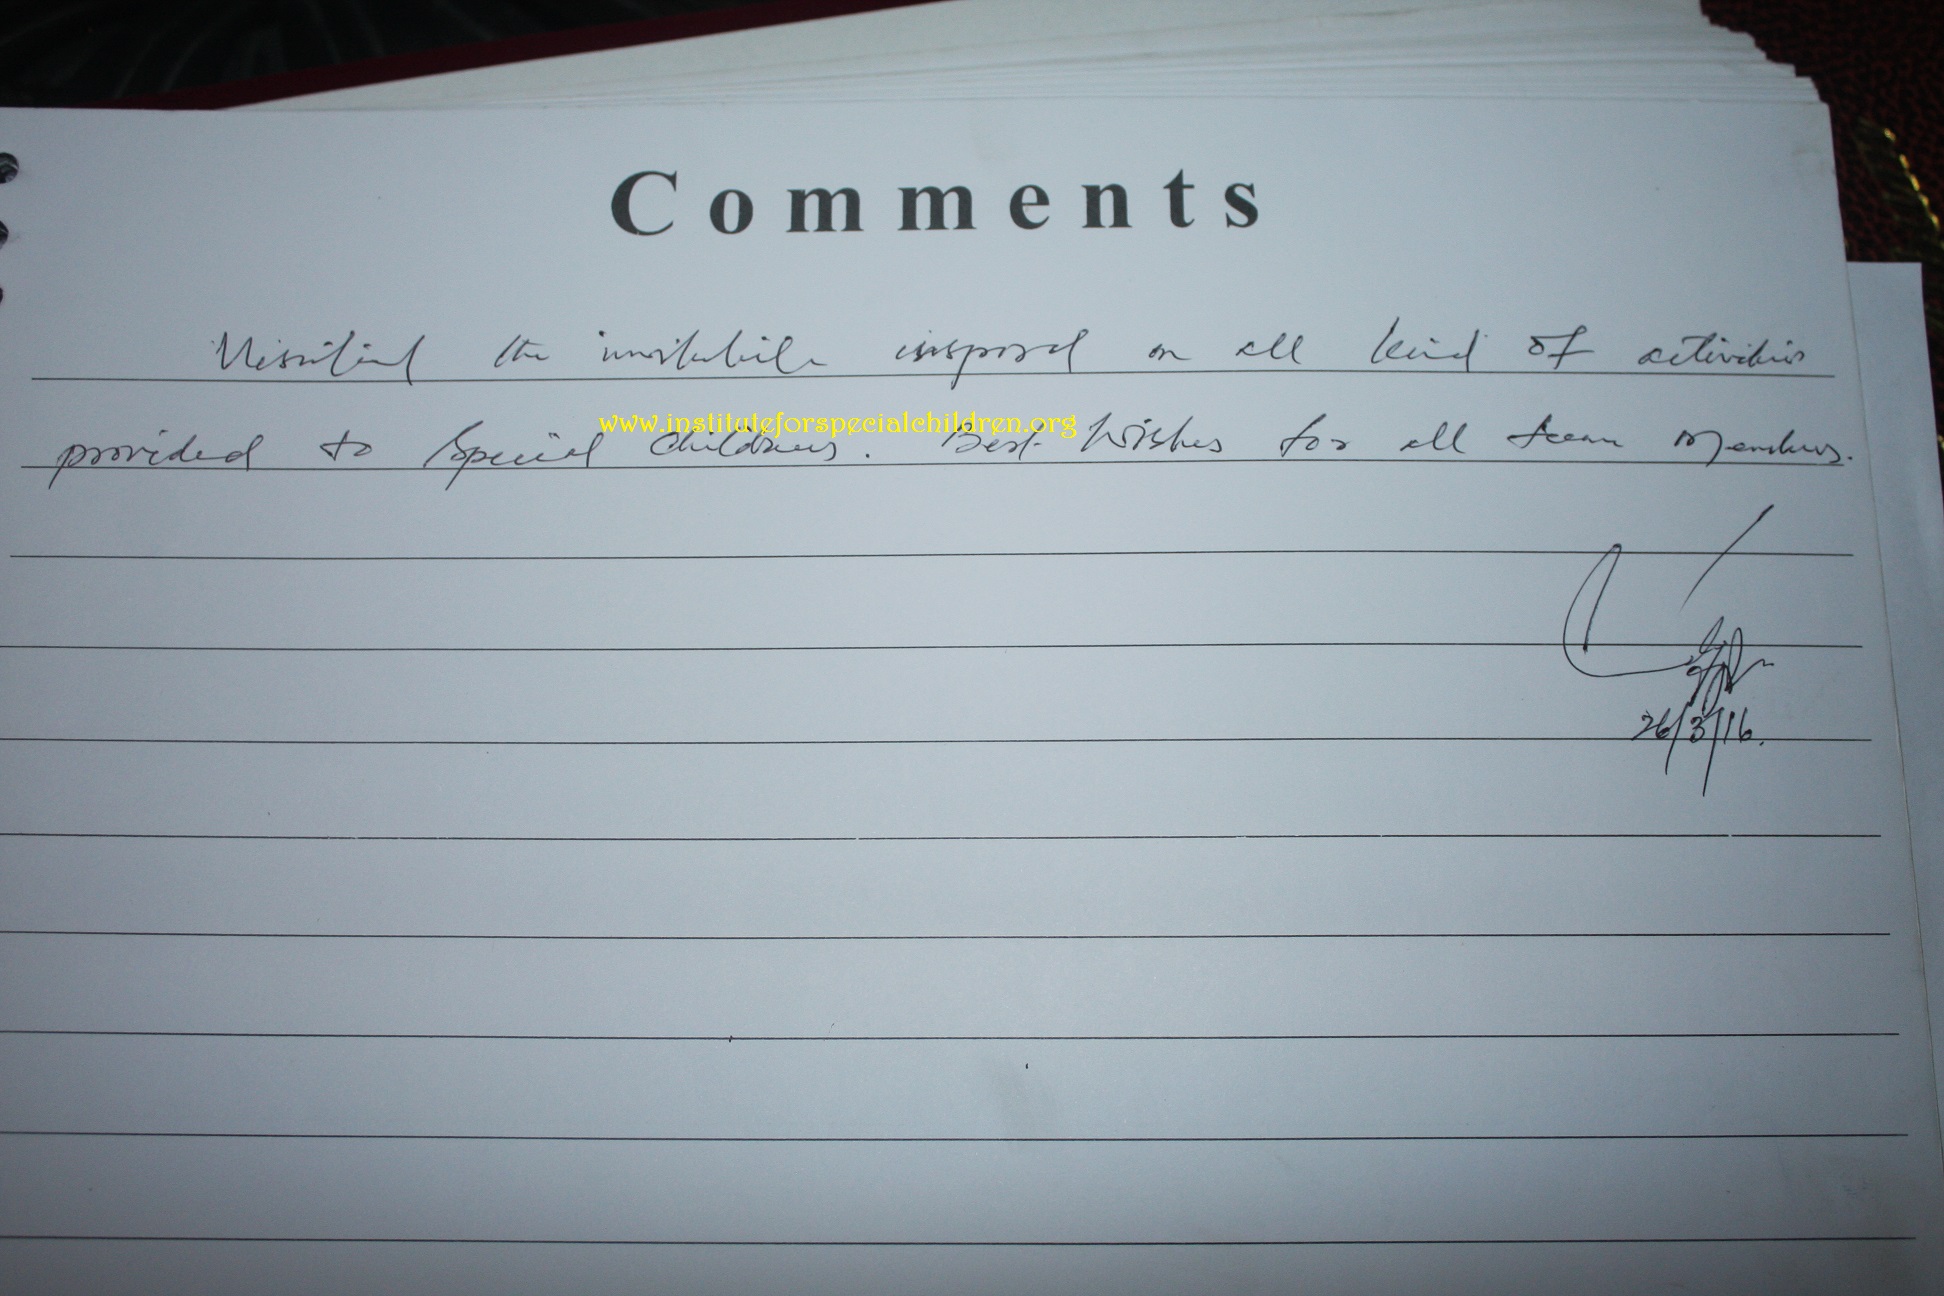 Comments
Visited the institute inspired on all kind of activities
www.instituteforspecialchildren.org
provided to Special Childrens. Best Wishes for all team Members.
26/3/16.